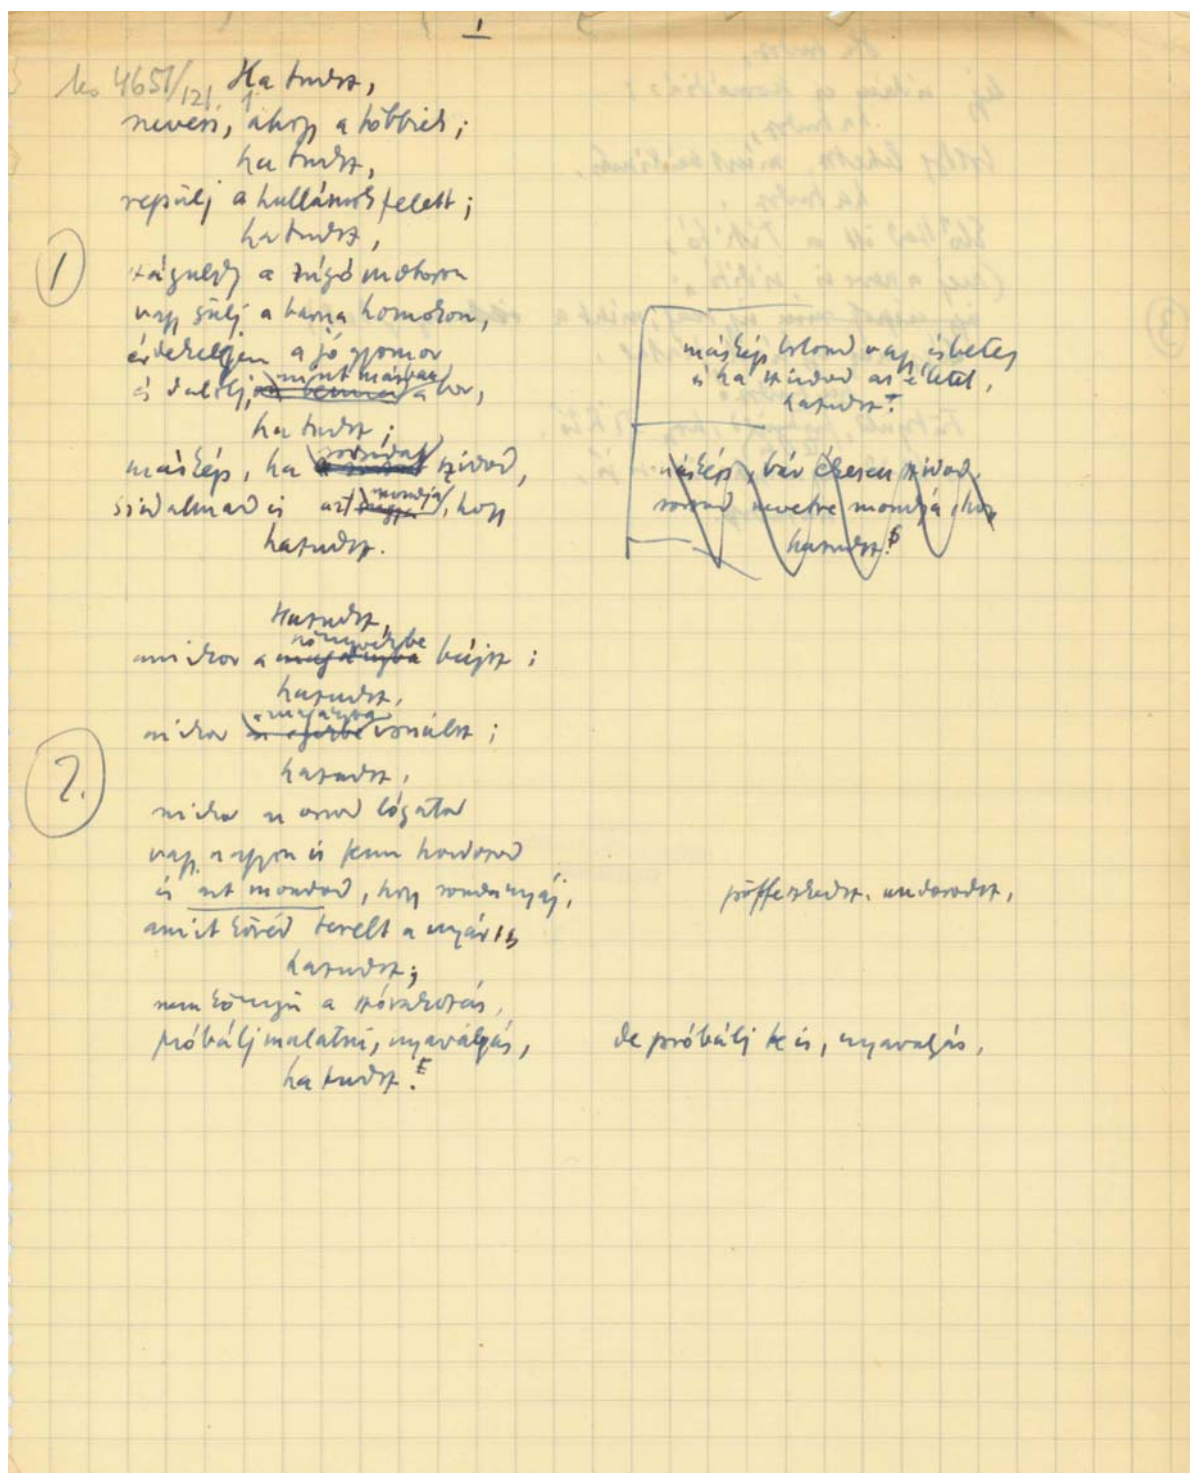 1
Ms 4651/121. 1
Ha tudsz,
nevess, ahogy a többiek;
ha tudsz,
repülj a hullámok felett;
ha tudsz,
száguldj a zúgó motoron
vagy sülj a barna homokon,
érdekeljen a jó gyomor
és dalolj, mint másban a bor,
ha tudsz;
máskép, ha sorsodat szidod,
szidalmad is azt mondja, hogy
hazudsz.
máskép bolond vagy és beteg
s ha szidod az életet,
hazudsz!
máskép, bár ékesen szidod,
sorsod nevetve mondja, hogy
hazudsz!
1
Hazudsz,
amikor a könyvekbe bújsz;
hazudsz,
mikor a magányba vonulsz;
hazudsz,
mikor az orrod lógatod
vagy nagyon is fenn hordozod
és azt mondod, hogy ronda nyáj,
amit köréd terelt a nyár
hazudsz;
nem könnyű a szórakozás,
próbálj mulatni, nyavalyás,
ha tudsz!
püffeszkedsz, undorodsz,
de próbálj te is, nyavalyás,
2.